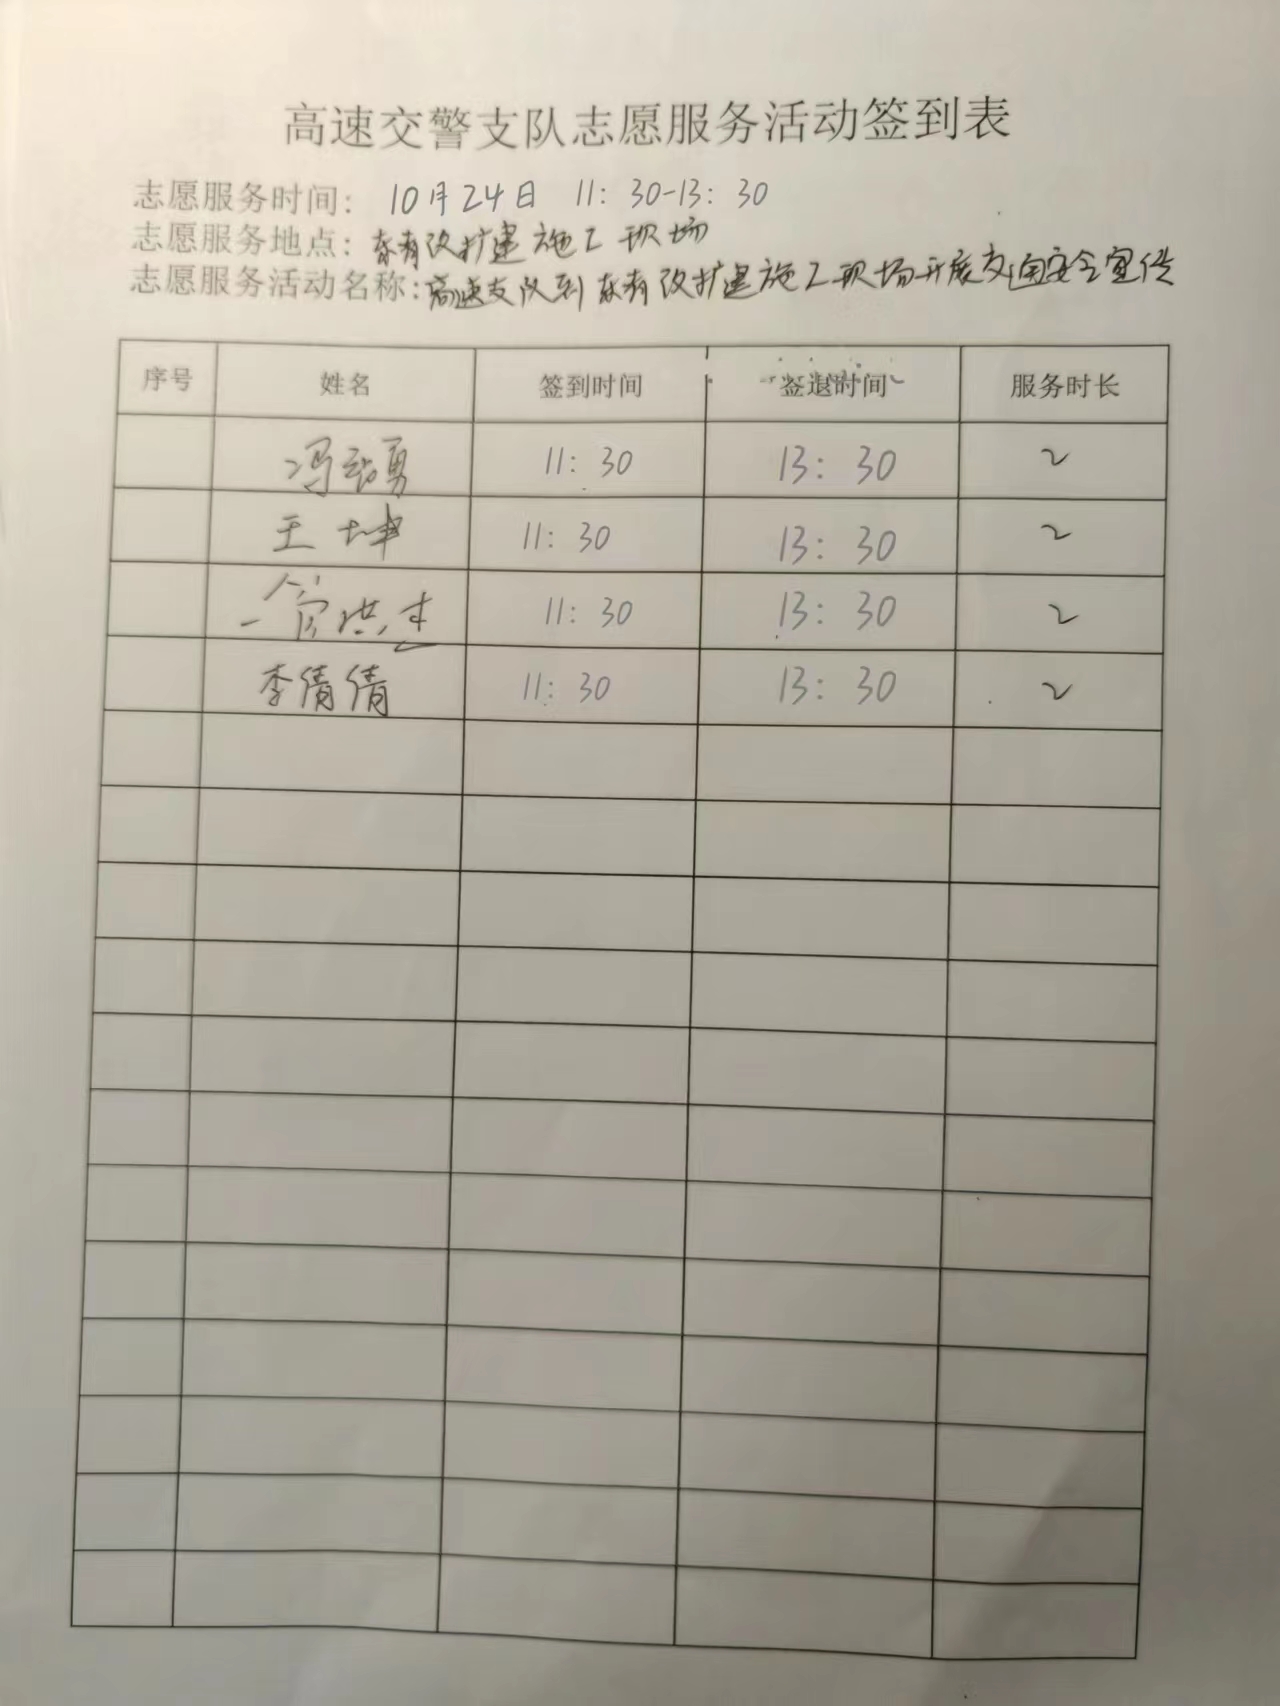 高速交警支队志愿服务活动签到表
志愿服务时间： 10月24日 11：30-13：30
志愿服务地点：东青改扩建施工现场
志愿服务活动名称：高速支队到东青改扩建施工现场开展交通安全宣传
序号 姓名 签到时间 签退时间 服务时长
冯 勇 11：30 13：30 2
王坤 11：30 13：30 2
11：30 13：30 2
李倩倩 11：30 13：30 2